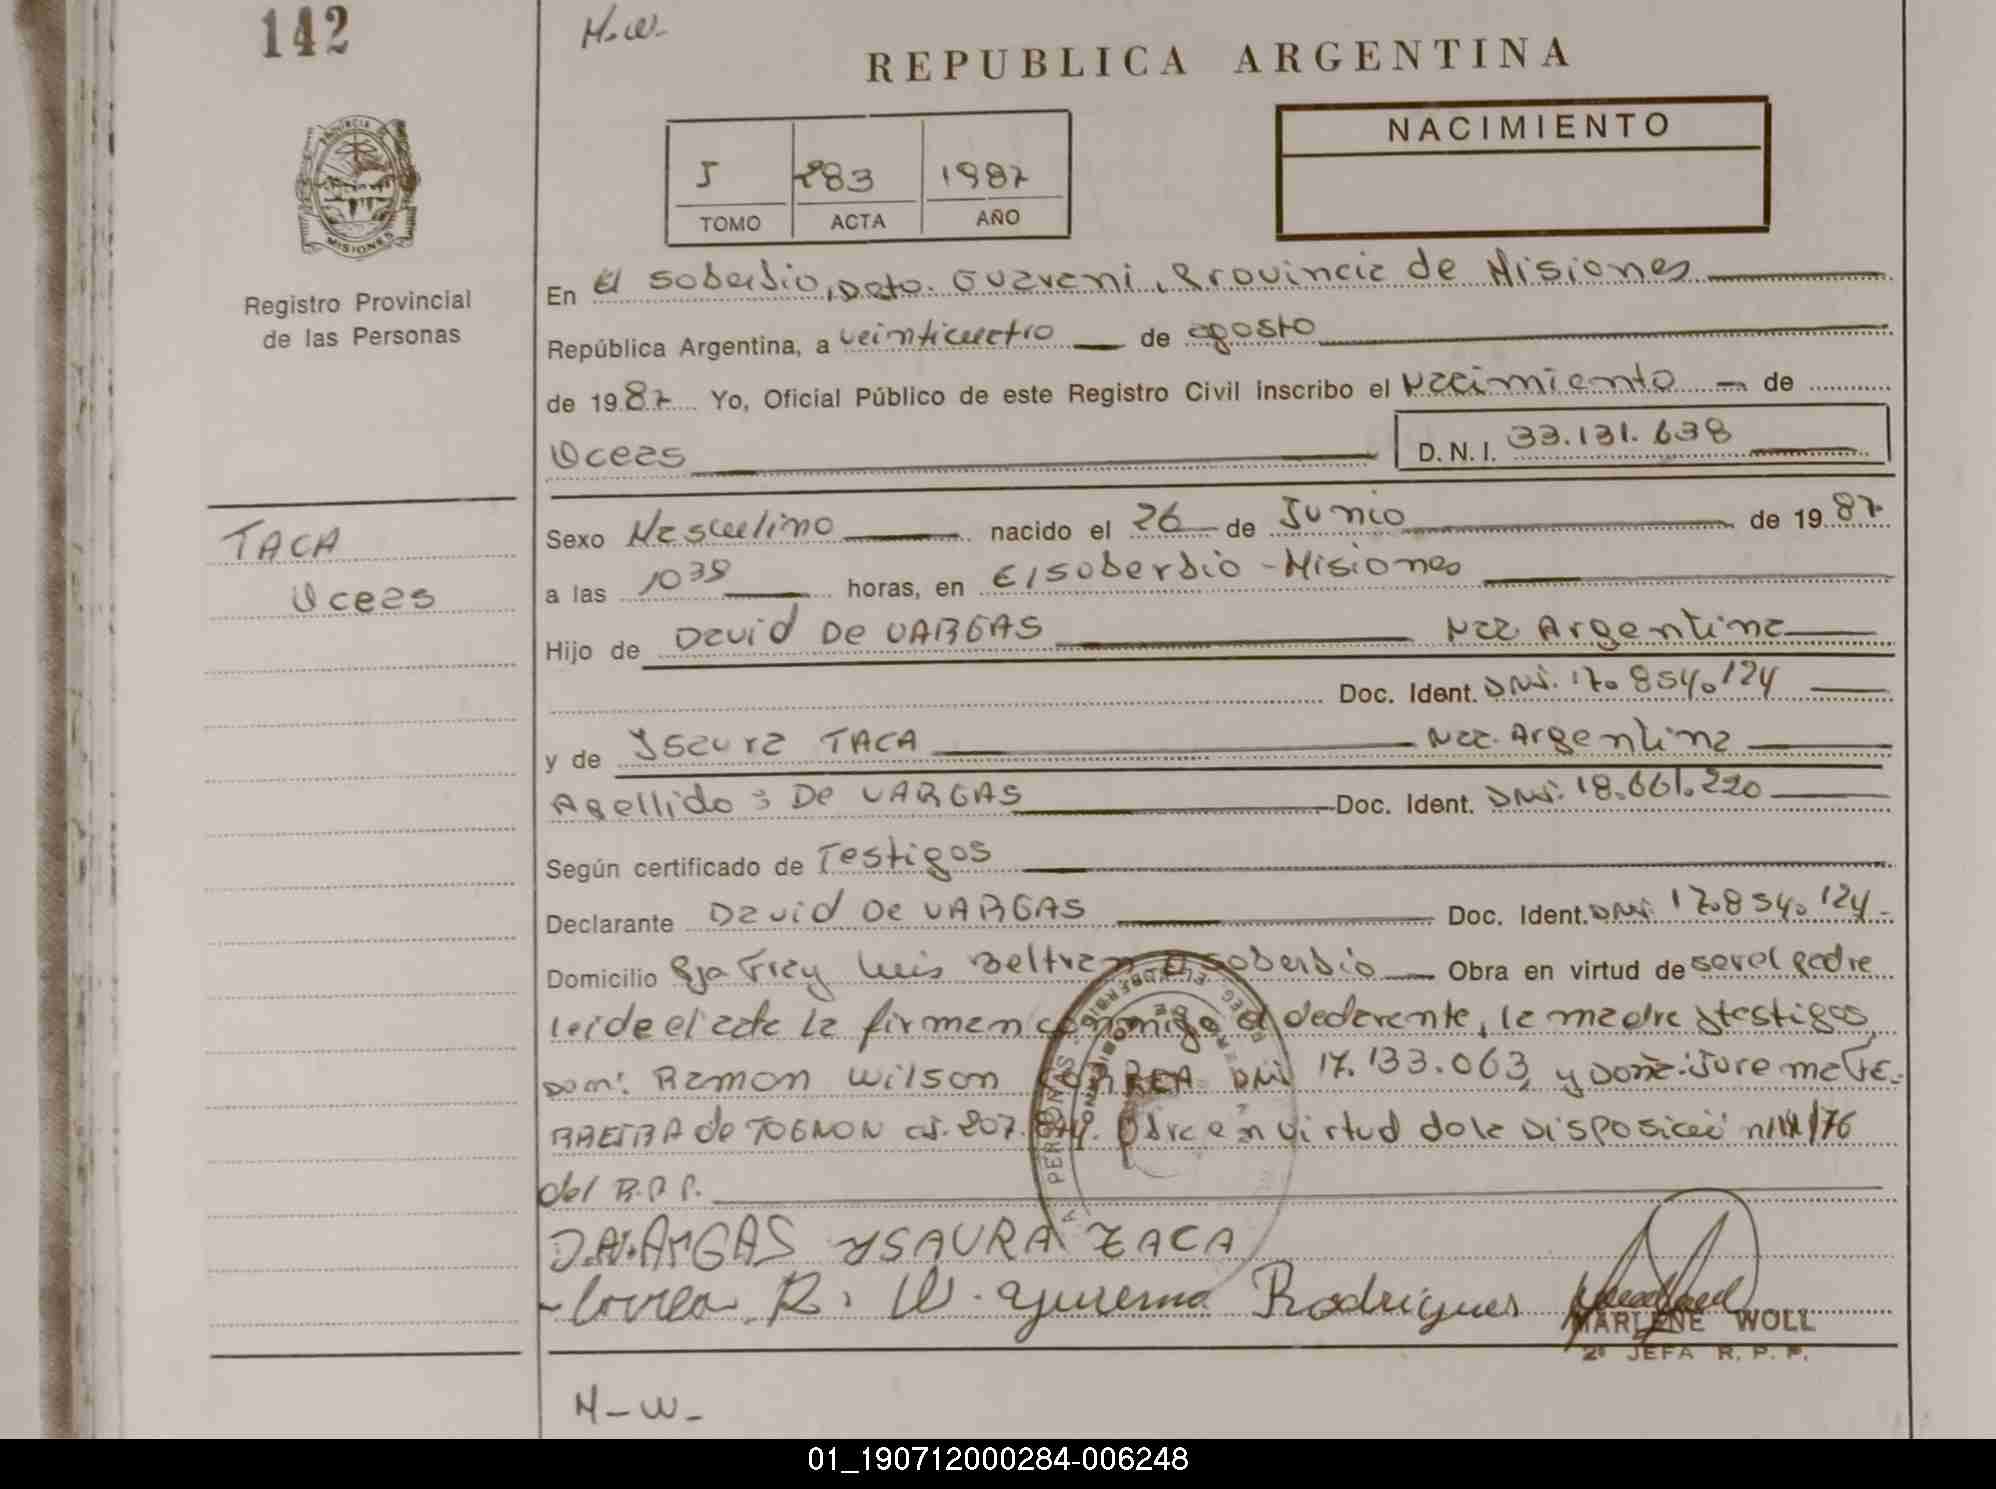 142
H.W.
REPUBLICA ARGENTINA
NACIMIENTO
I 283 1987
TOMO ACTA AÑO
PROVINCIA
MISIONES
Registro Provincial
de las Personas
En El Soberbio, Dpto. Guarani, Provincia de Misiones
República Argentina, a veinticuatro de agosto
de 1987 Yo, Oficial Público de este Registro Civil inscribo el Nacimiento de
D.N.I. 33.131.638
TACA
Sexo Masculino nacido el 26 de Junio de 1987
a las horas, en El Soberbio - Misiones
Hijo de David De VARGAS Nac Argentina
Doc. Ident. DNI. 17.854.124
y de Ysaura TACA Nac. Argentina
Apellido: De VARGAS Doc. Ident. DNI. 18.661.220
Según certificado de Testigos
Declarante David De VARGAS Doc. Ident. DNI. 17.854.124
Domicilio Fray Luis Beltran El Soberbio Obra en virtud de ser el padre
leida el acta la firman conmigo el declarante, la madre y testigos
Don: Ramon Wilson CORREA DNI 17.133.063, y Doña:
de TOGNON CI. 207. Obra en virtud de la Disposición
del R.P.P.
YSAURA TACA
Correa R. W. Rodrigues
MARLENE WOLL
2ª JEFA R. P. P.
H-W-
01_190712000284-006248